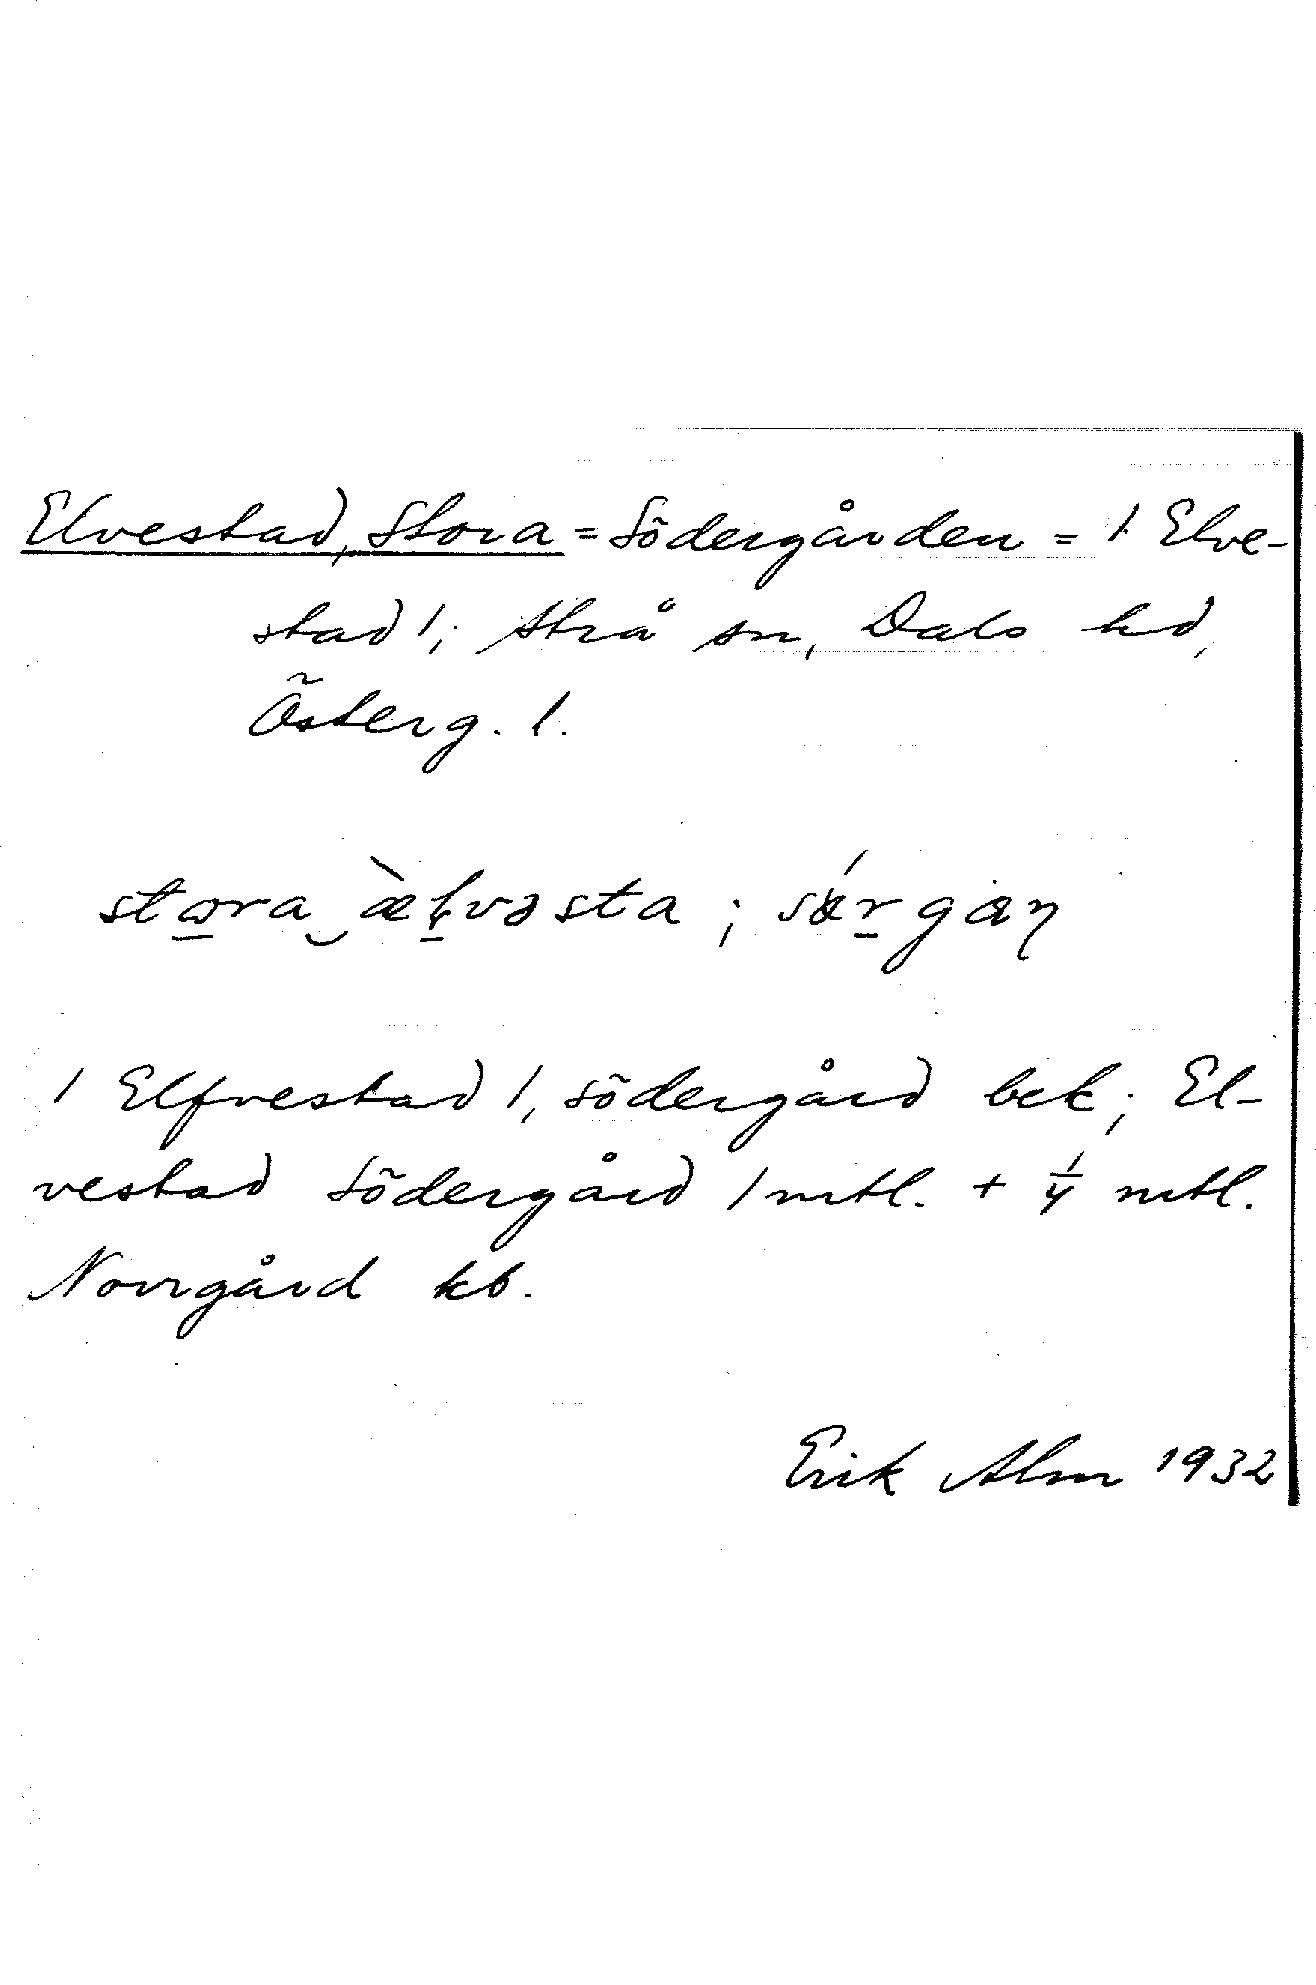 Elvestad, Stora = Södergården = 1 Elve-
stad 1; Strå sn, Dals hd,
Österg. l.
stɷra ‿ æ̀ḷvəsta ; sǿrgaɳ
1 Elfvestad 1, Södergård bek; El-
vestad Södergård 1 mtl. + 1/4 mtl.
Norrgård kb.
Erik Alm 1932